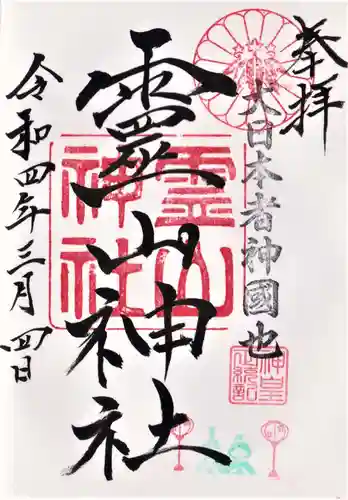 奉拝
大日本者神國也
靈山神社
霊山
神社
神皇
正統記
令和四年三月四日